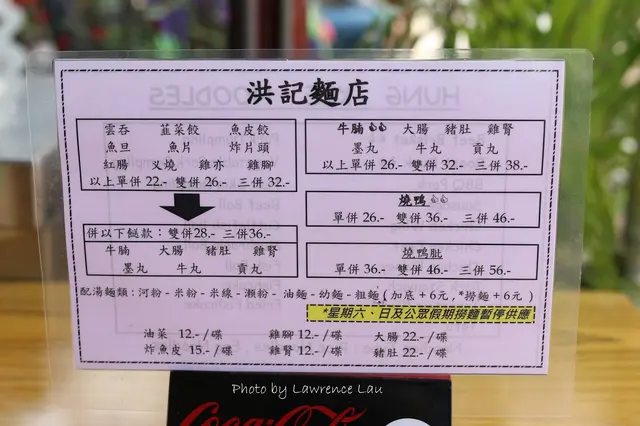 洪記麵店
雲吞 韮菜餃 魚皮餃
魚旦 魚片 炸片頭
紅腸 义燒 雞亦 雞腳
以上單併 22.- 雙併 26.- 三併 32.-
併以下餸款：雙併28.- 三併36.-
牛腩 大腸 豬肚 雞腎
墨丸 牛丸 貢丸
牛腩 大腸 豬肚 雞腎
墨丸 牛丸 貢丸
以上單併 26.- 雙併 32.- 三併 38.-
燒鴨
單併 26.- 雙併 36.- 三併 46.-
燒鴨髀
單併 36.- 雙併 46.- 三併 56.-
配湯麵類：河粉 - 米粉 - 米線 - 瀨粉 - 油麵 - 幼麵 - 粗麵 ( 加底 + 6元 , *撈麵 + 6元 )
*星期六、日及公眾假期撈麵暫停供應
油菜 12.-/碟 雞腳 12.-/碟 大腸 22.-/碟
炸魚皮 15.-/碟 雞腎 12.-/碟 豬肚 22.-/碟
Photo by Lawrence Lau
Coca-Cola